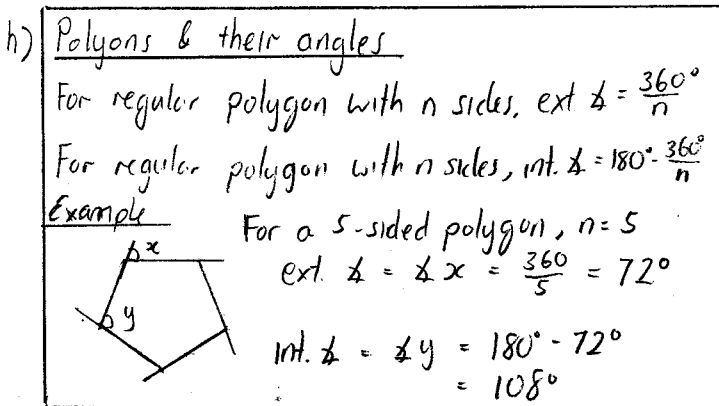 h) Polyons & their angles
For regular polygon with n sides, ext ∡ = 360°/n
For regular polygon with n sides, int. ∡ = 180° - 360°/n
Example
For a 5-sided polygon, n = 5
x
ext. ∡ = ∡x = 360/5 = 72°
y
int. ∡ = ∡y = 180° - 72°
= 108°